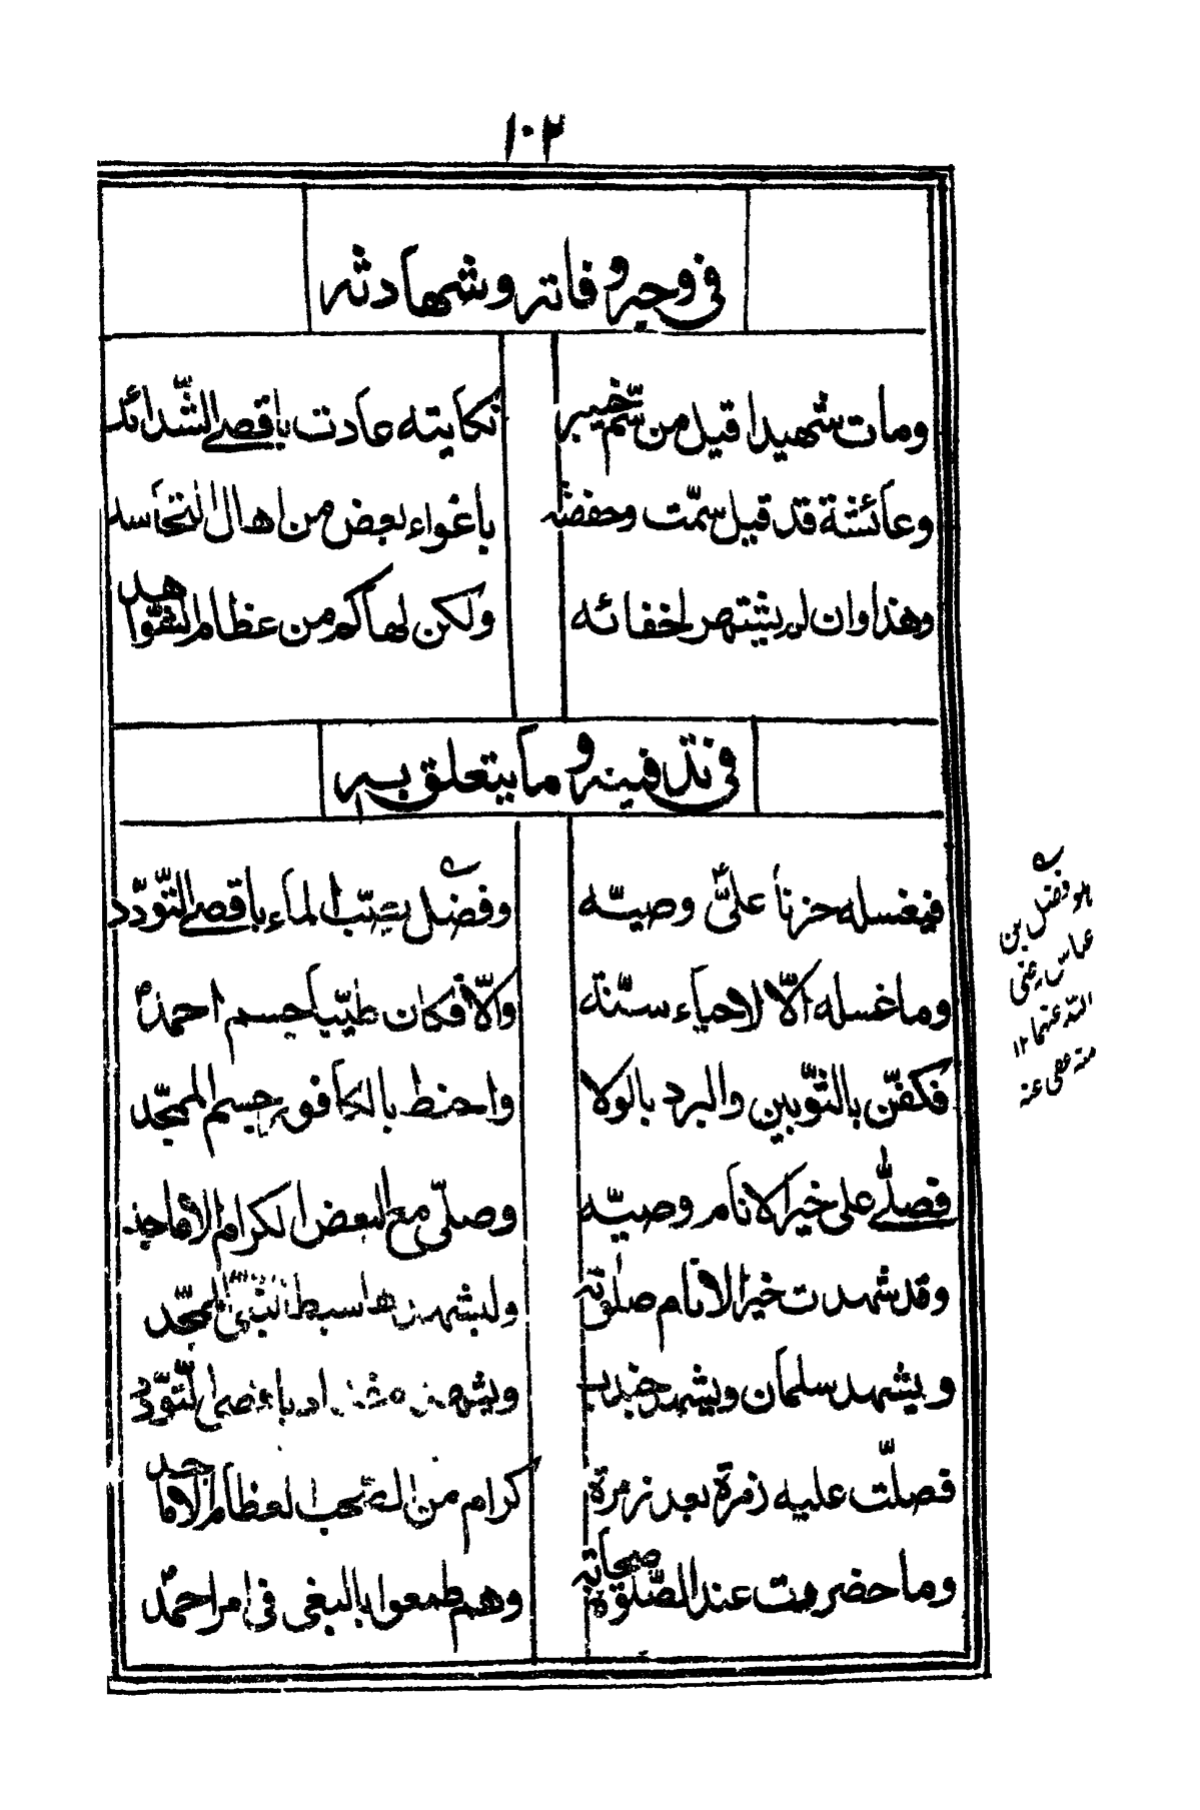 ١٠٢
في وجه وفاته وشهادته
ومات شهيدا قيل من سم خيبر نكايته عادت باقصى الشدائد
وعائشة قد قيل سمّت وحفصه باغواء بعض من اهال التحاسد
وهذا وان لم يشتهر لخفائه ولكن لها كم من عظام الشواهد
في تدفينه وما يتعلق به
فيغسله حزنا عليّ وصيّه وفضل يصبّ الماء باقصى التّودّد
وما غسله الّا لاحياء سنّة والّا فكان طيّبا جسم احمد
فكفّن بالثّوبين والبرد بالولا واحنط بالكافور جسم الممجّد
فصلّى على خير الانام وصيّه وصلّى مع البعض الكرام الاماجد
وقد شهدت خير الانام صلوته وليشهدن ها سبط النبي الممجّد
ويشهد سلمان ويشهد جندب ويشهد مقداد باقصى التّودّد
فصلّت عليه زمرة بعد زمرة كرام من الصحب العظام الاماجد
وما حضروت عند الصّلوة صحابه وهم طمعوا بالبغي في امر احمد
هو فضل بن
عباس رضي
الله عنهما ١٢
منه عفي عنه